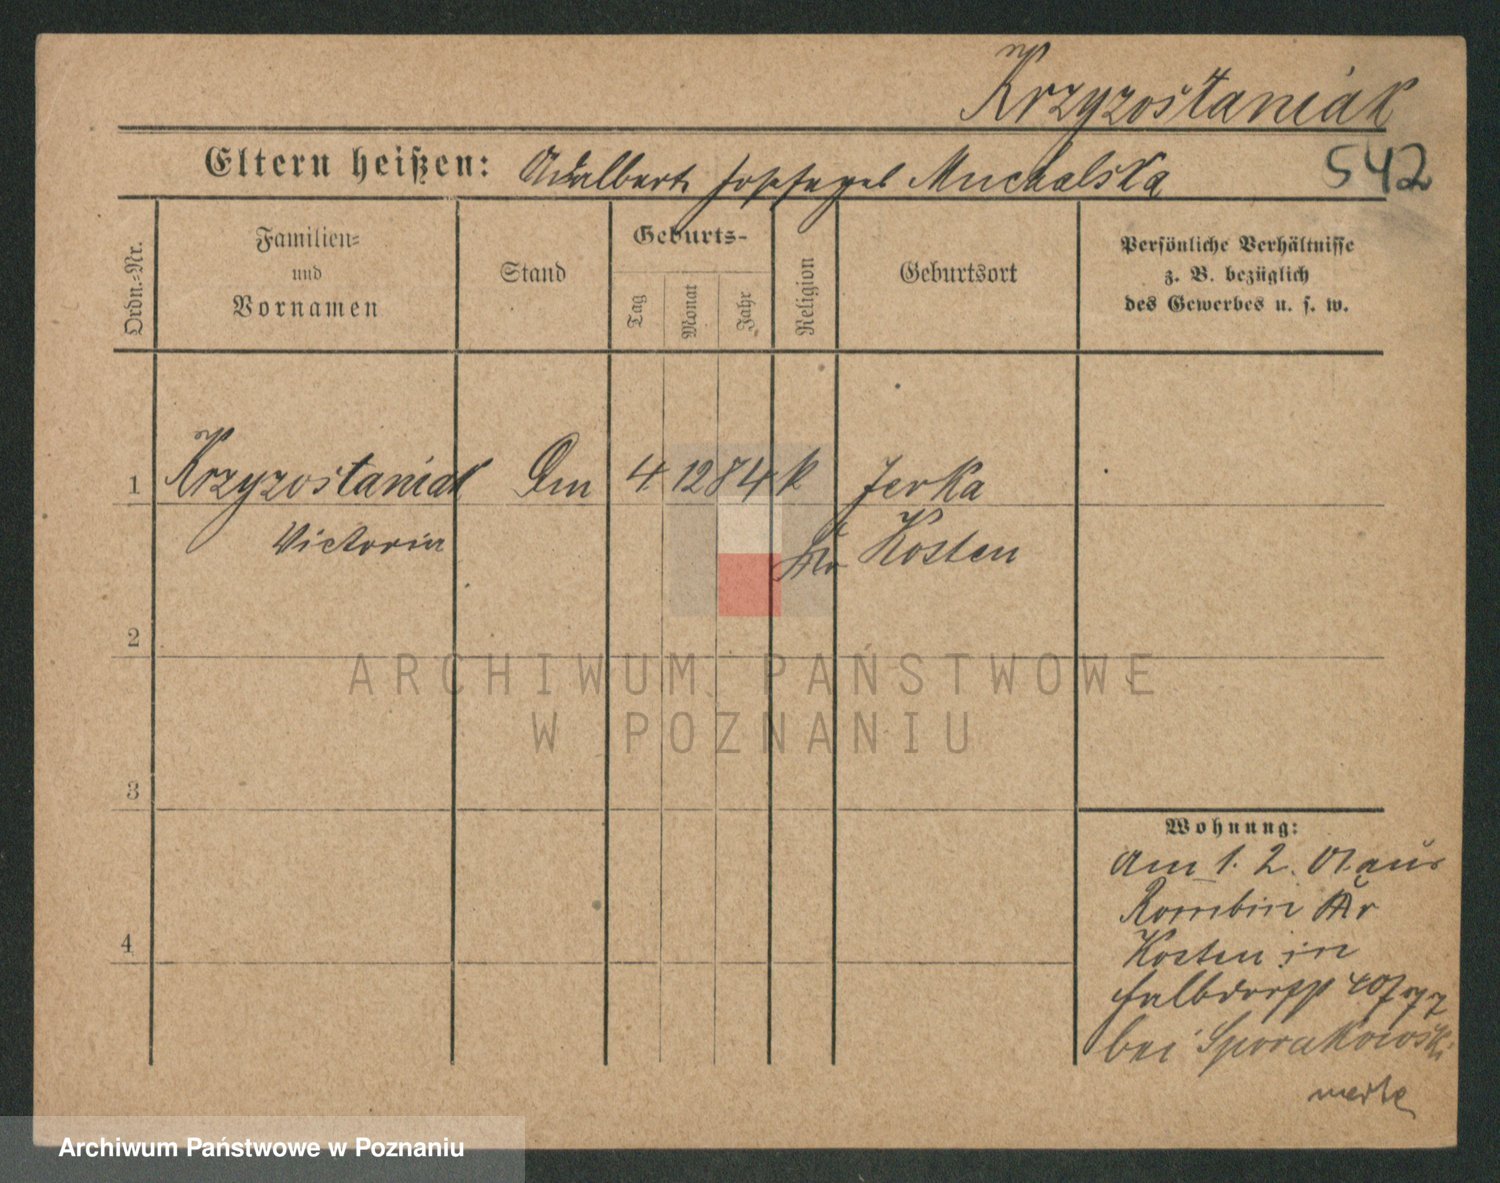 Krzyzostaniak
Eltern heißen: Adalbert Muchalska
542
Ordn.-Nr.
Familien-
und
Vornamen
Stand
Geburts-
Tag
Monat
Jahr
Religion
Geburtsort
Persönliche Verhältnisse
z. B. bezüglich
des Gewerbes u. s. w.
1 Krzyzostaniak Dm 4 12 84 k Jerka
Victoria Kr Kosten
2
3
4
Wohnung:
am 1. 2. 01 aus
Kombin Kr
Kosten in
bei Sporakowski
ARCHIWUM PAŃSTWOWE
W POZNANIU
Archiwum Państwowe w Poznaniu